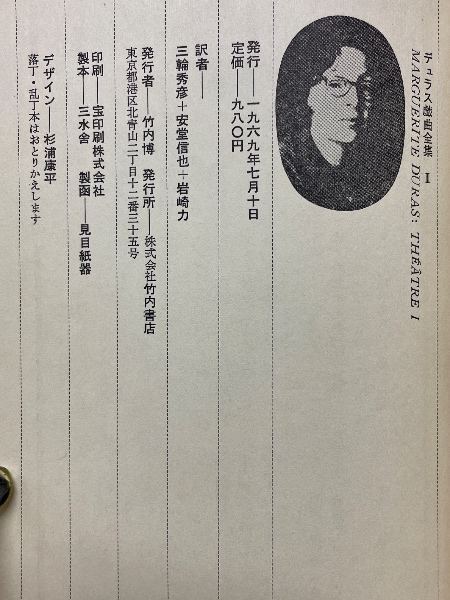 デュラス戯曲全集 I
MARGUERITE DURAS: THÉÂTRE I
発行──一九六九年七月十日
定価──九八〇円
訳者──
三輪秀彦+安堂信也+岩崎力
発行者──竹内博 発行所──株式会社竹内書店
東京都港区北青山二丁目十二番三十五号
印刷──宝印刷株式会社
製本──三水舎 製函──見目紙器
デザイン──杉浦康平
落丁・乱丁本はおとりかえします